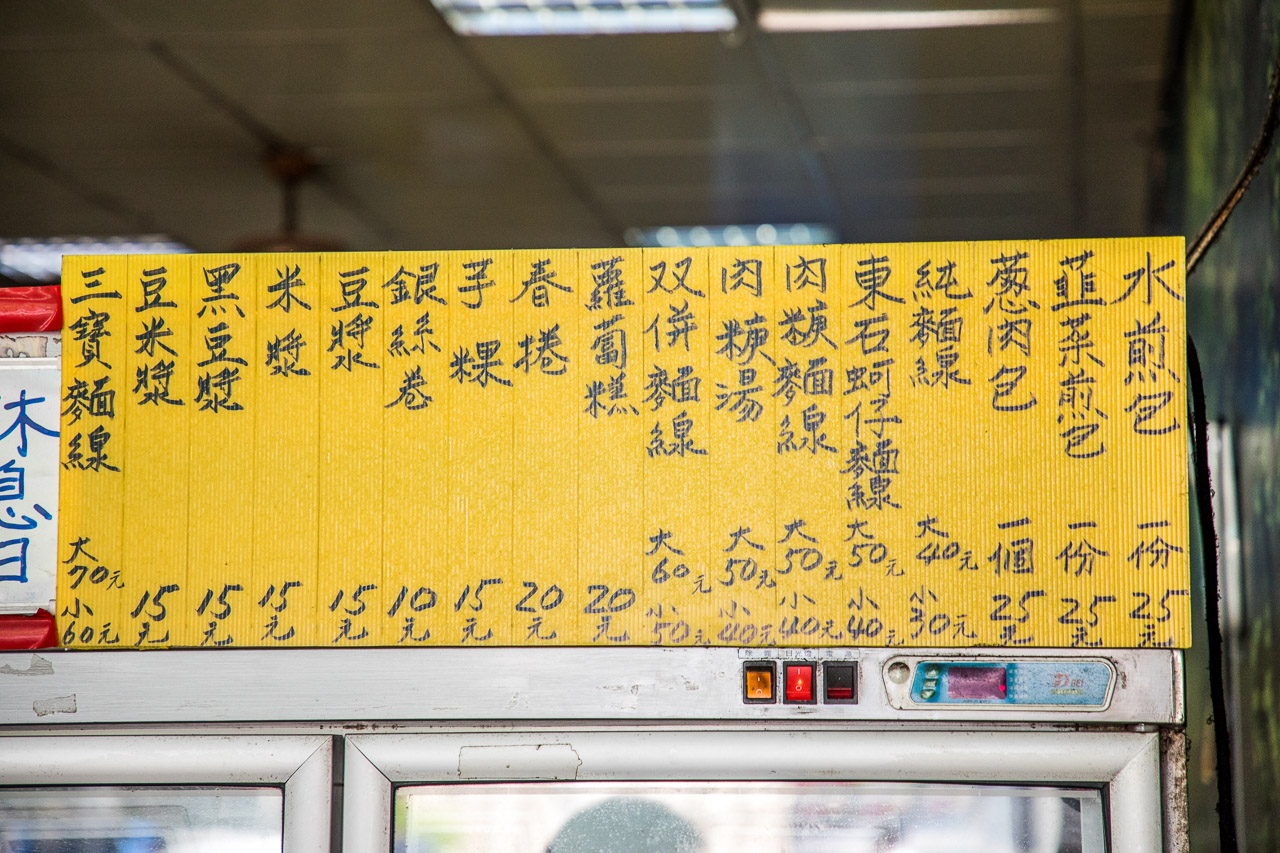 水煎包 一份 25元
韮菜煎包 一份 25元
蔥肉包 一個 25元
純麵線 大40元 小30元
東石蚵仔麵線 大50元 小40元
肉焿麵線 大50元 小40元
肉焿湯 大50元 小40元
双併麵線 大60元 小50元
蘿蔔糕 20元
春捲 20元
芋粿 15元
銀絲卷 10元
豆漿 15元
米漿 15元
黑豆漿 15元
豆米漿 15元
三寶麵線 大70元 小60元
休息日